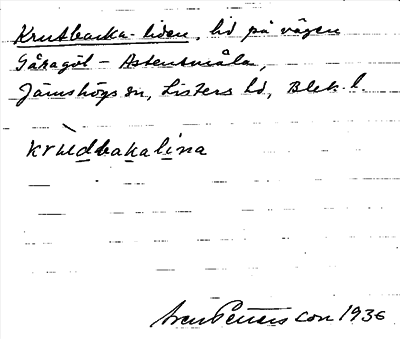 Krutbacka-liden, lid på vägen
Gåragöl - Astentmåla,
Jämshögs sn, Listers hd, Blek. l.
krùdbakalina
Sven Petersson 1936